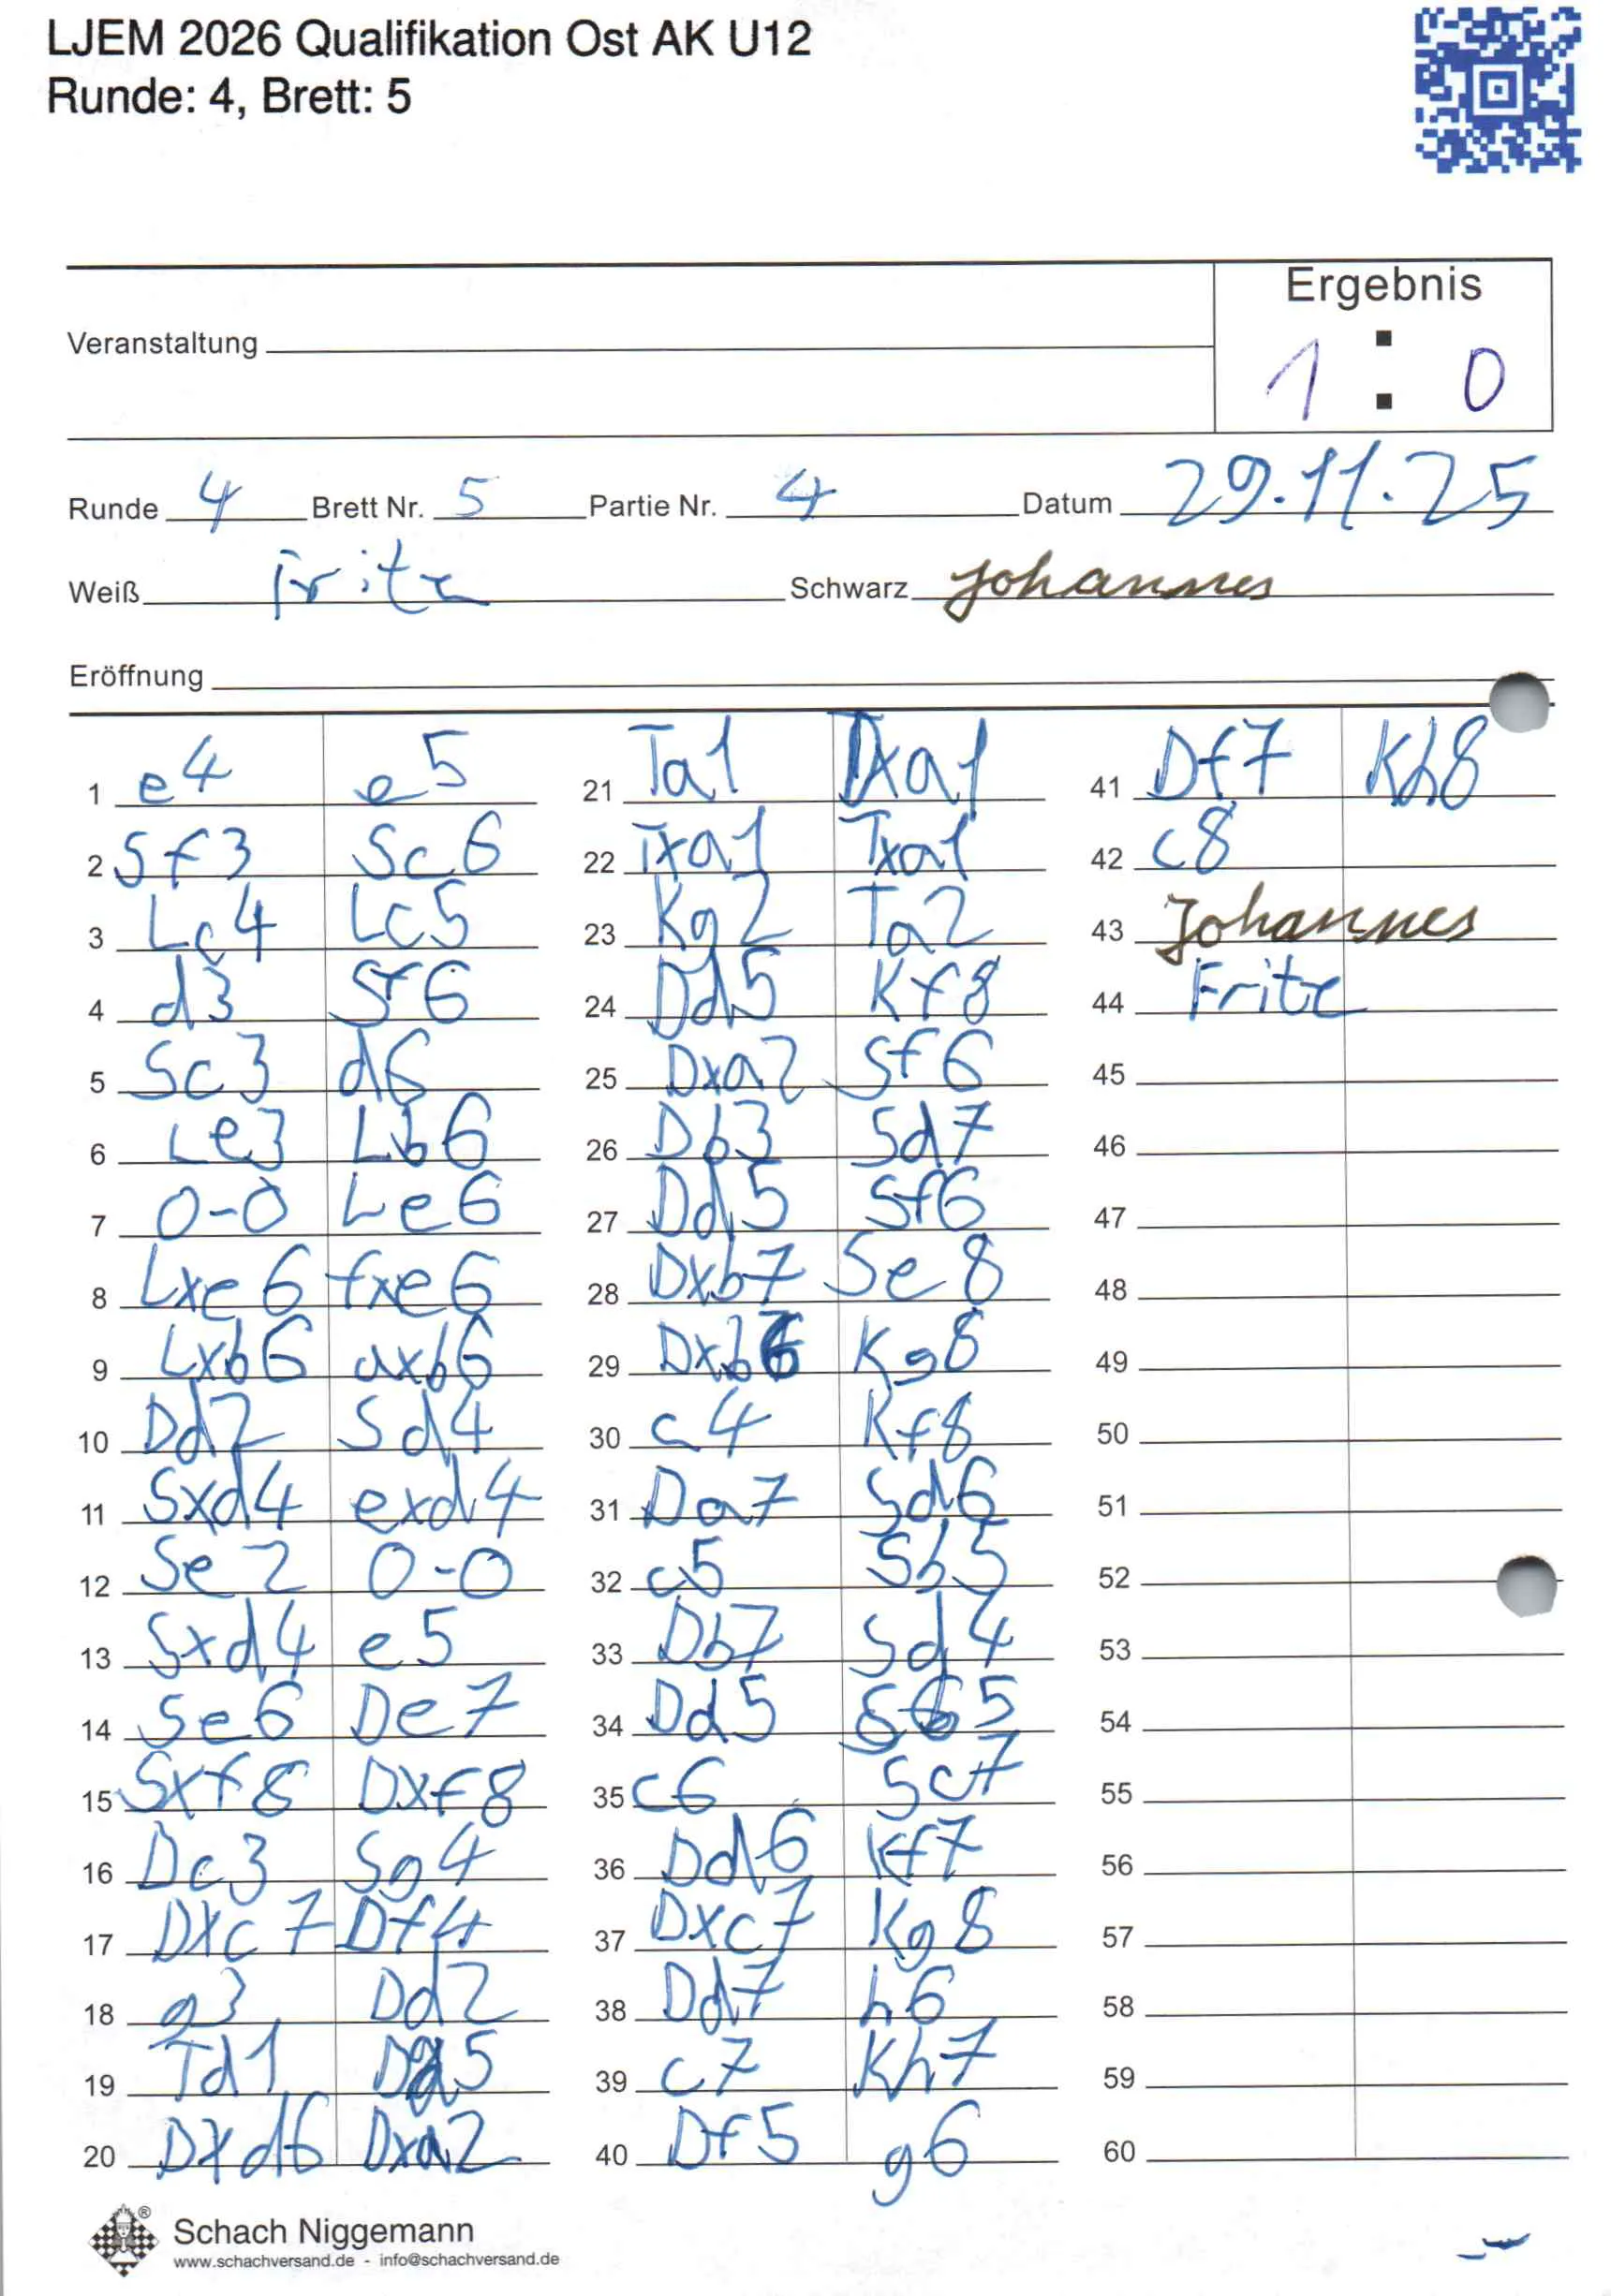 LJEM 2026 Qualifikation Ost AK U12
Runde: 4, Brett: 5
Ergebnis
1 : 0
Veranstaltung
Runde 4 Brett Nr. 5 Partie Nr. 4 Datum 29.11.25
Weiß Fritz Schwarz Johannes
Eröffnung
1 e4 e5
2 Sf3 Sc6
3 Lc4 Lc5
4 d3 Sf6
5 Sc3 d6
6 Le3 Lb6
7 0-0 Le6
8 Lxe6 fxe6
9 Lxb6 axb6
10 Dd2 Sd4
11 Sxd4 exd4
12 Se2 0-0
13 Sxd4 e5
14 Se6 De7
15 Sxf8 Dxf8
16 Dc3 Sg4
17 Dxc7 Df4
18 g3 Dd2
19 Td1 Da5
20 Dxd6 Dxa2
21 Ta1 Dxa1
22 Txa1 Txa1
23 Kg2 Ta2
24 Dd5 Kf8
25 Dxa2 Sf6
26 Db3 Sd7
27 Dd5 Sf6
28 Dxb7 Se8
29 Dxb6 Kg8
30 c4 Kf8
31 Da7 Sd6
32 c5 Sb5
33 Db7 Sd4
34 Dd5 Sb5
35 c6 Sc7
36 Dd6 Kf7
37 Dxc7 Kg8
38 Dd7 h6
39 c7 Kh7
40 Df5 g6
41 Df7 Kh8
42 c8
43 Johannes
44 Fritz
45
46
47
48
49
50
51
52
53
54
55
56
57
58
59
60
Schach Niggemann
www.schachversand.de - info@schachversand.de